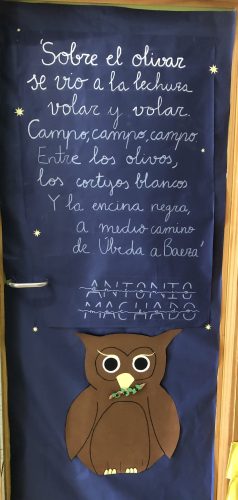 'Sobre el olivar
se vio a la lechuza
volar y volar.
Campo, campo, campo
Entre los olivos,
los cortijos blancos
Y la encina negra,
a medio camino
de Úbeda a Baeza'
ANTONIO
MACHADO